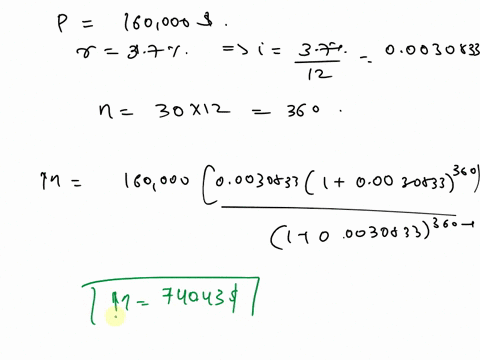 P = 160,000 $.
r = 3.7% => i = 3.7% / 12 = 0.0030833
n = 30 × 12 = 360.
M = 160,000 [0.0030833 (1 + 0.0030833)^360]
(1 + 0.0030833)^360-1
M = 74043$